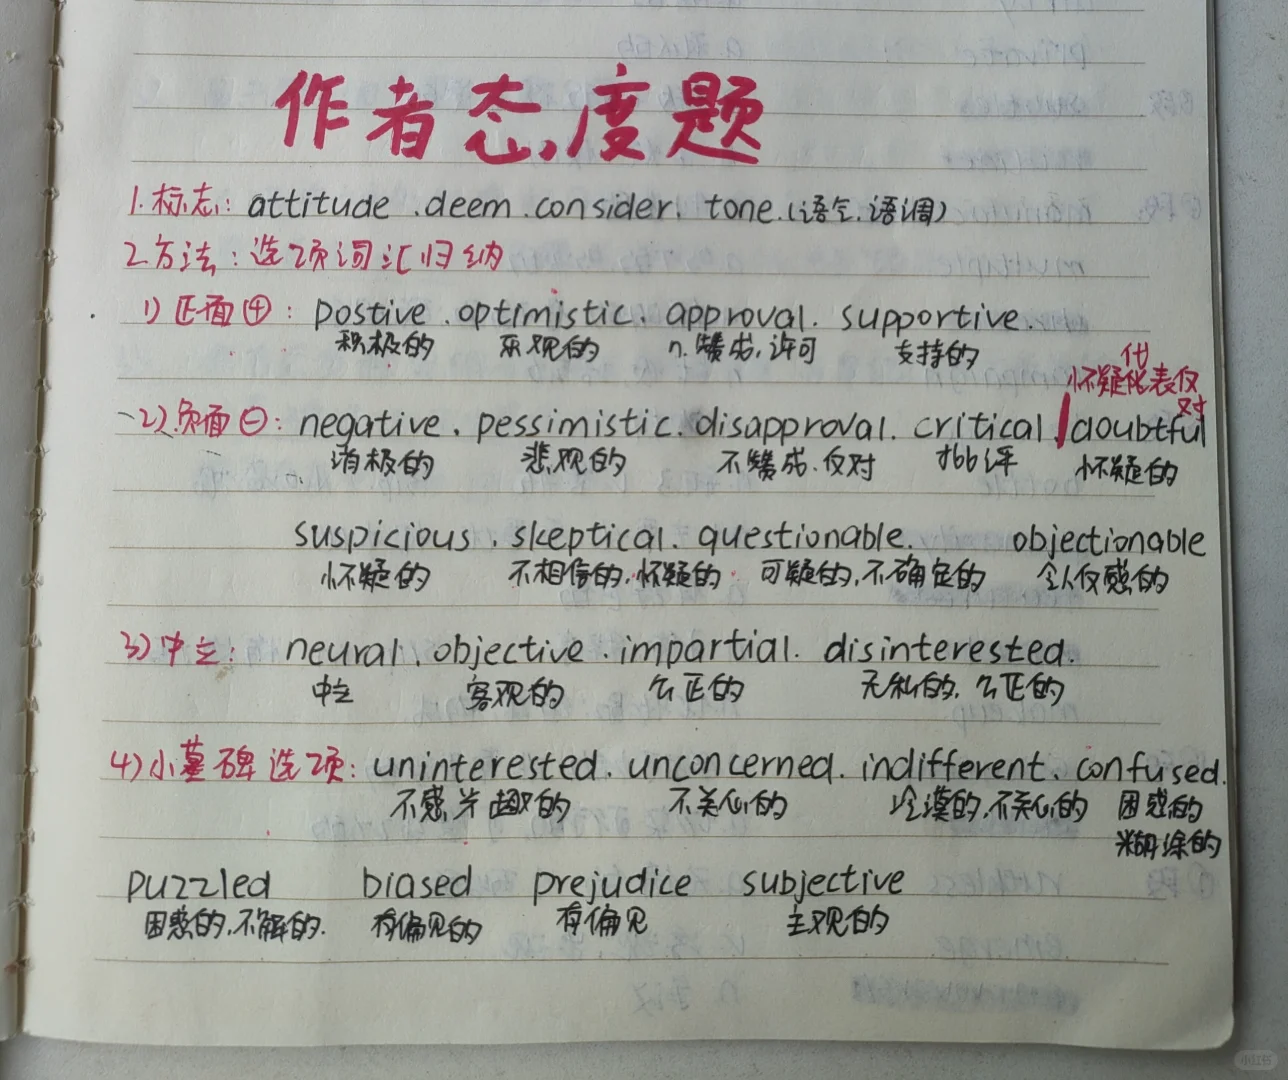 作者态度题
1.标志: attitude .deem .consider. tone.(语气.语调)
2.方法:选项词汇归纳
1)正面⊕: postive . optimistic. approval. supportive.
积极的 乐观的 n.赞成.许可 支持的
怀疑代表反对
2)负面⊖: negative . pessimistic. disapproval. critical doubtful
消极的 悲观的 不赞成.反对 批评 怀疑的
suspicious . skeptical. questionable. objectionable
怀疑的 不相信的.怀疑的 可疑的,不确定的 令人反感的
3)中立: neural. objective . impartial. disinterested.
中立 客观的 公正的 无私的.公正的
4)小墓碑选项: uninterested. unconcerned. indifferent. confused.
不感兴趣的 不关心的 冷漠的.不关心的 困惑的
糊涂的
puzzled biased prejudice subjective
困惑的.不解的. 有偏见的 有偏见 主观的
小红书